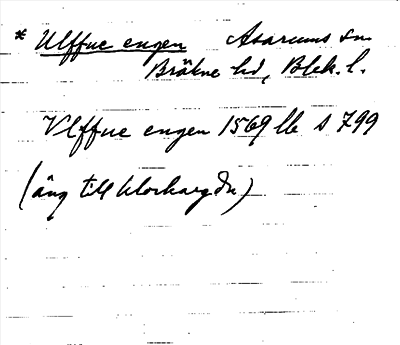 * Ulffue engen Asarums sn.
Bräkne hd, Blek. l.
Vlffue engen 1569 lb s 799
(äng till klockargdn)